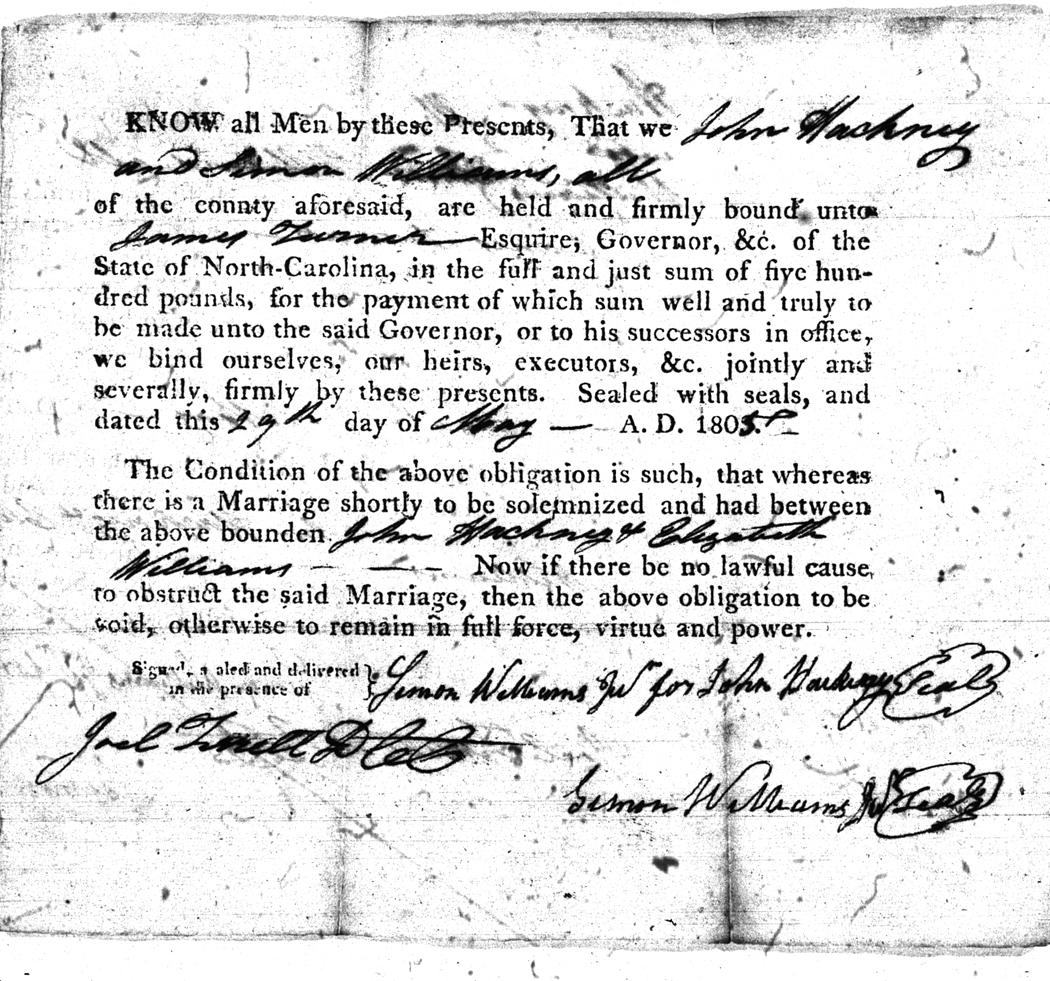 KNOW all Men by these Presents, That we John Hackney
and Simon Williams, all
of the county aforesaid, are held and firmly bound unto
James Turner Esquire, Governor, &c. of the
State of North-Carolina, in the full and just sum of five hun-
dred pounds, for the payment of which sum well and truly to
be made unto the said Governor, or to his successors in office,
we bind ourselves, our heirs, executors, &c. jointly and
severally, firmly by these presents. Sealed with seals, and
dated this 29th day of May — A. D. 1805.
The Condition of the above obligation is such, that whereas
there is a Marriage shortly to be solemnized and had between
the above bounden John Hackney & Elizabeth
Williams — — — Now if there be no lawful cause,
to obstruct the said Marriage, then the above obligation to be
void, otherwise to remain in full force, virtue and power.
Signed, sealed and delivered
in the presence of
Simon Williams Jr for John Hackney Seal
Joel Terrell D C C
Simon Williams Jr Seal